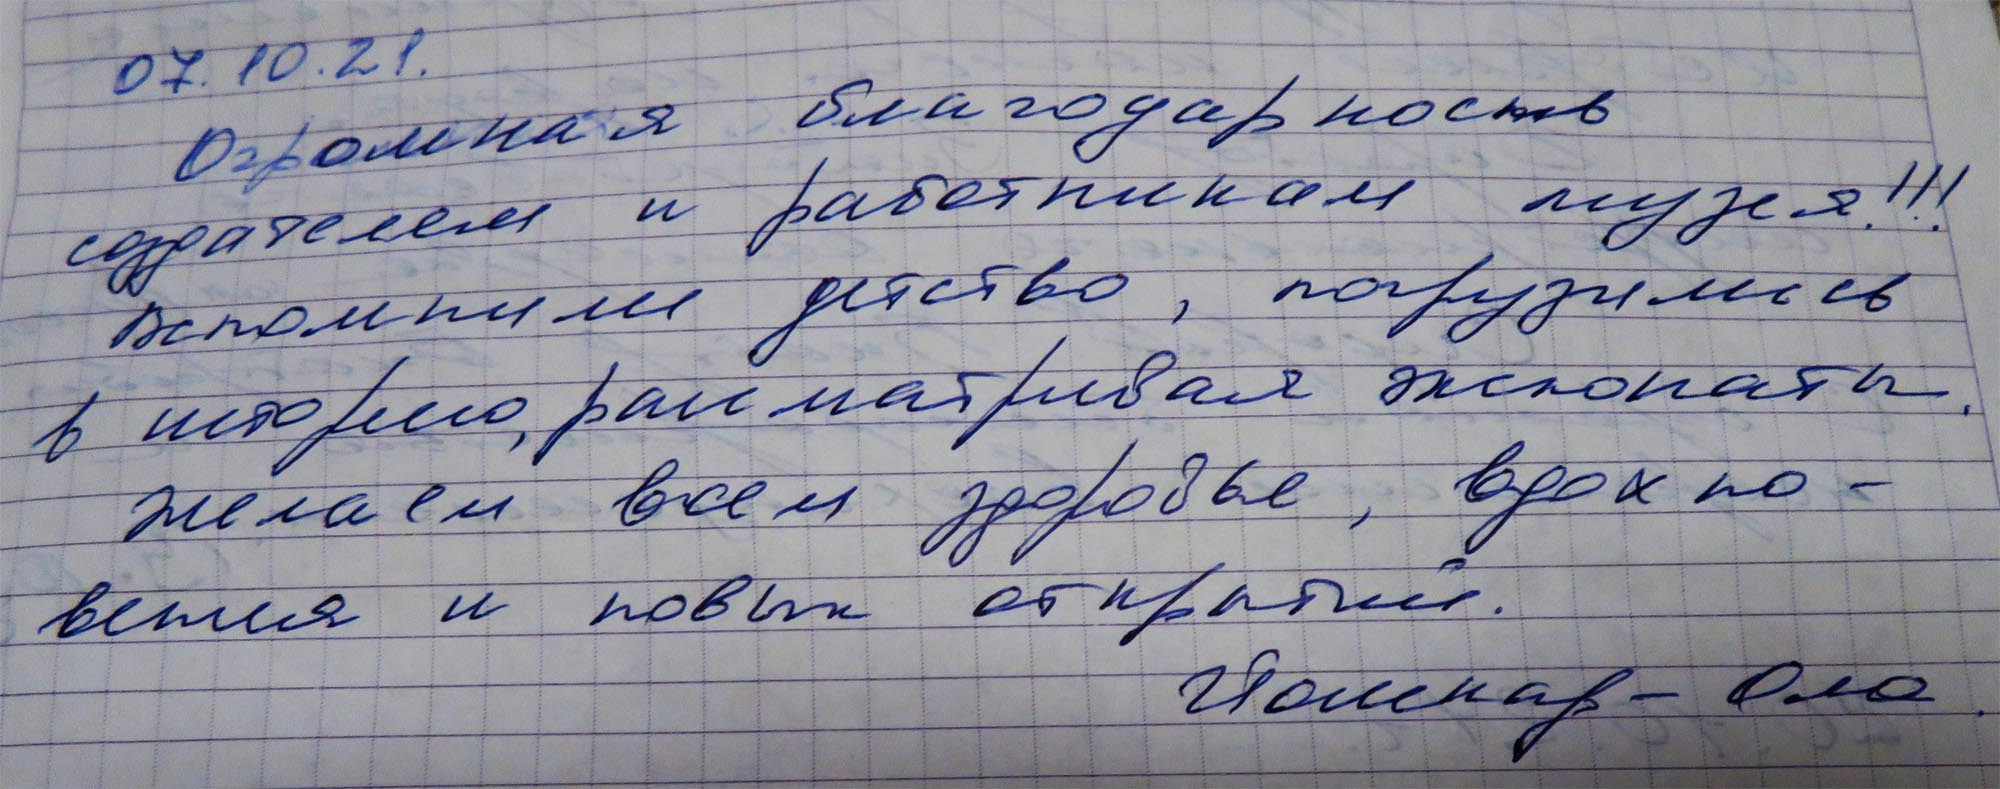 07.10.21.
Огромная благодарность
создателем и работникам музея!!!
Вспомнили детство, погрузились
в историю, рассматривая экспонаты.
Желаем всем здоровье, вдохно-
вения и новых открытий.
Йошкар-Ола.